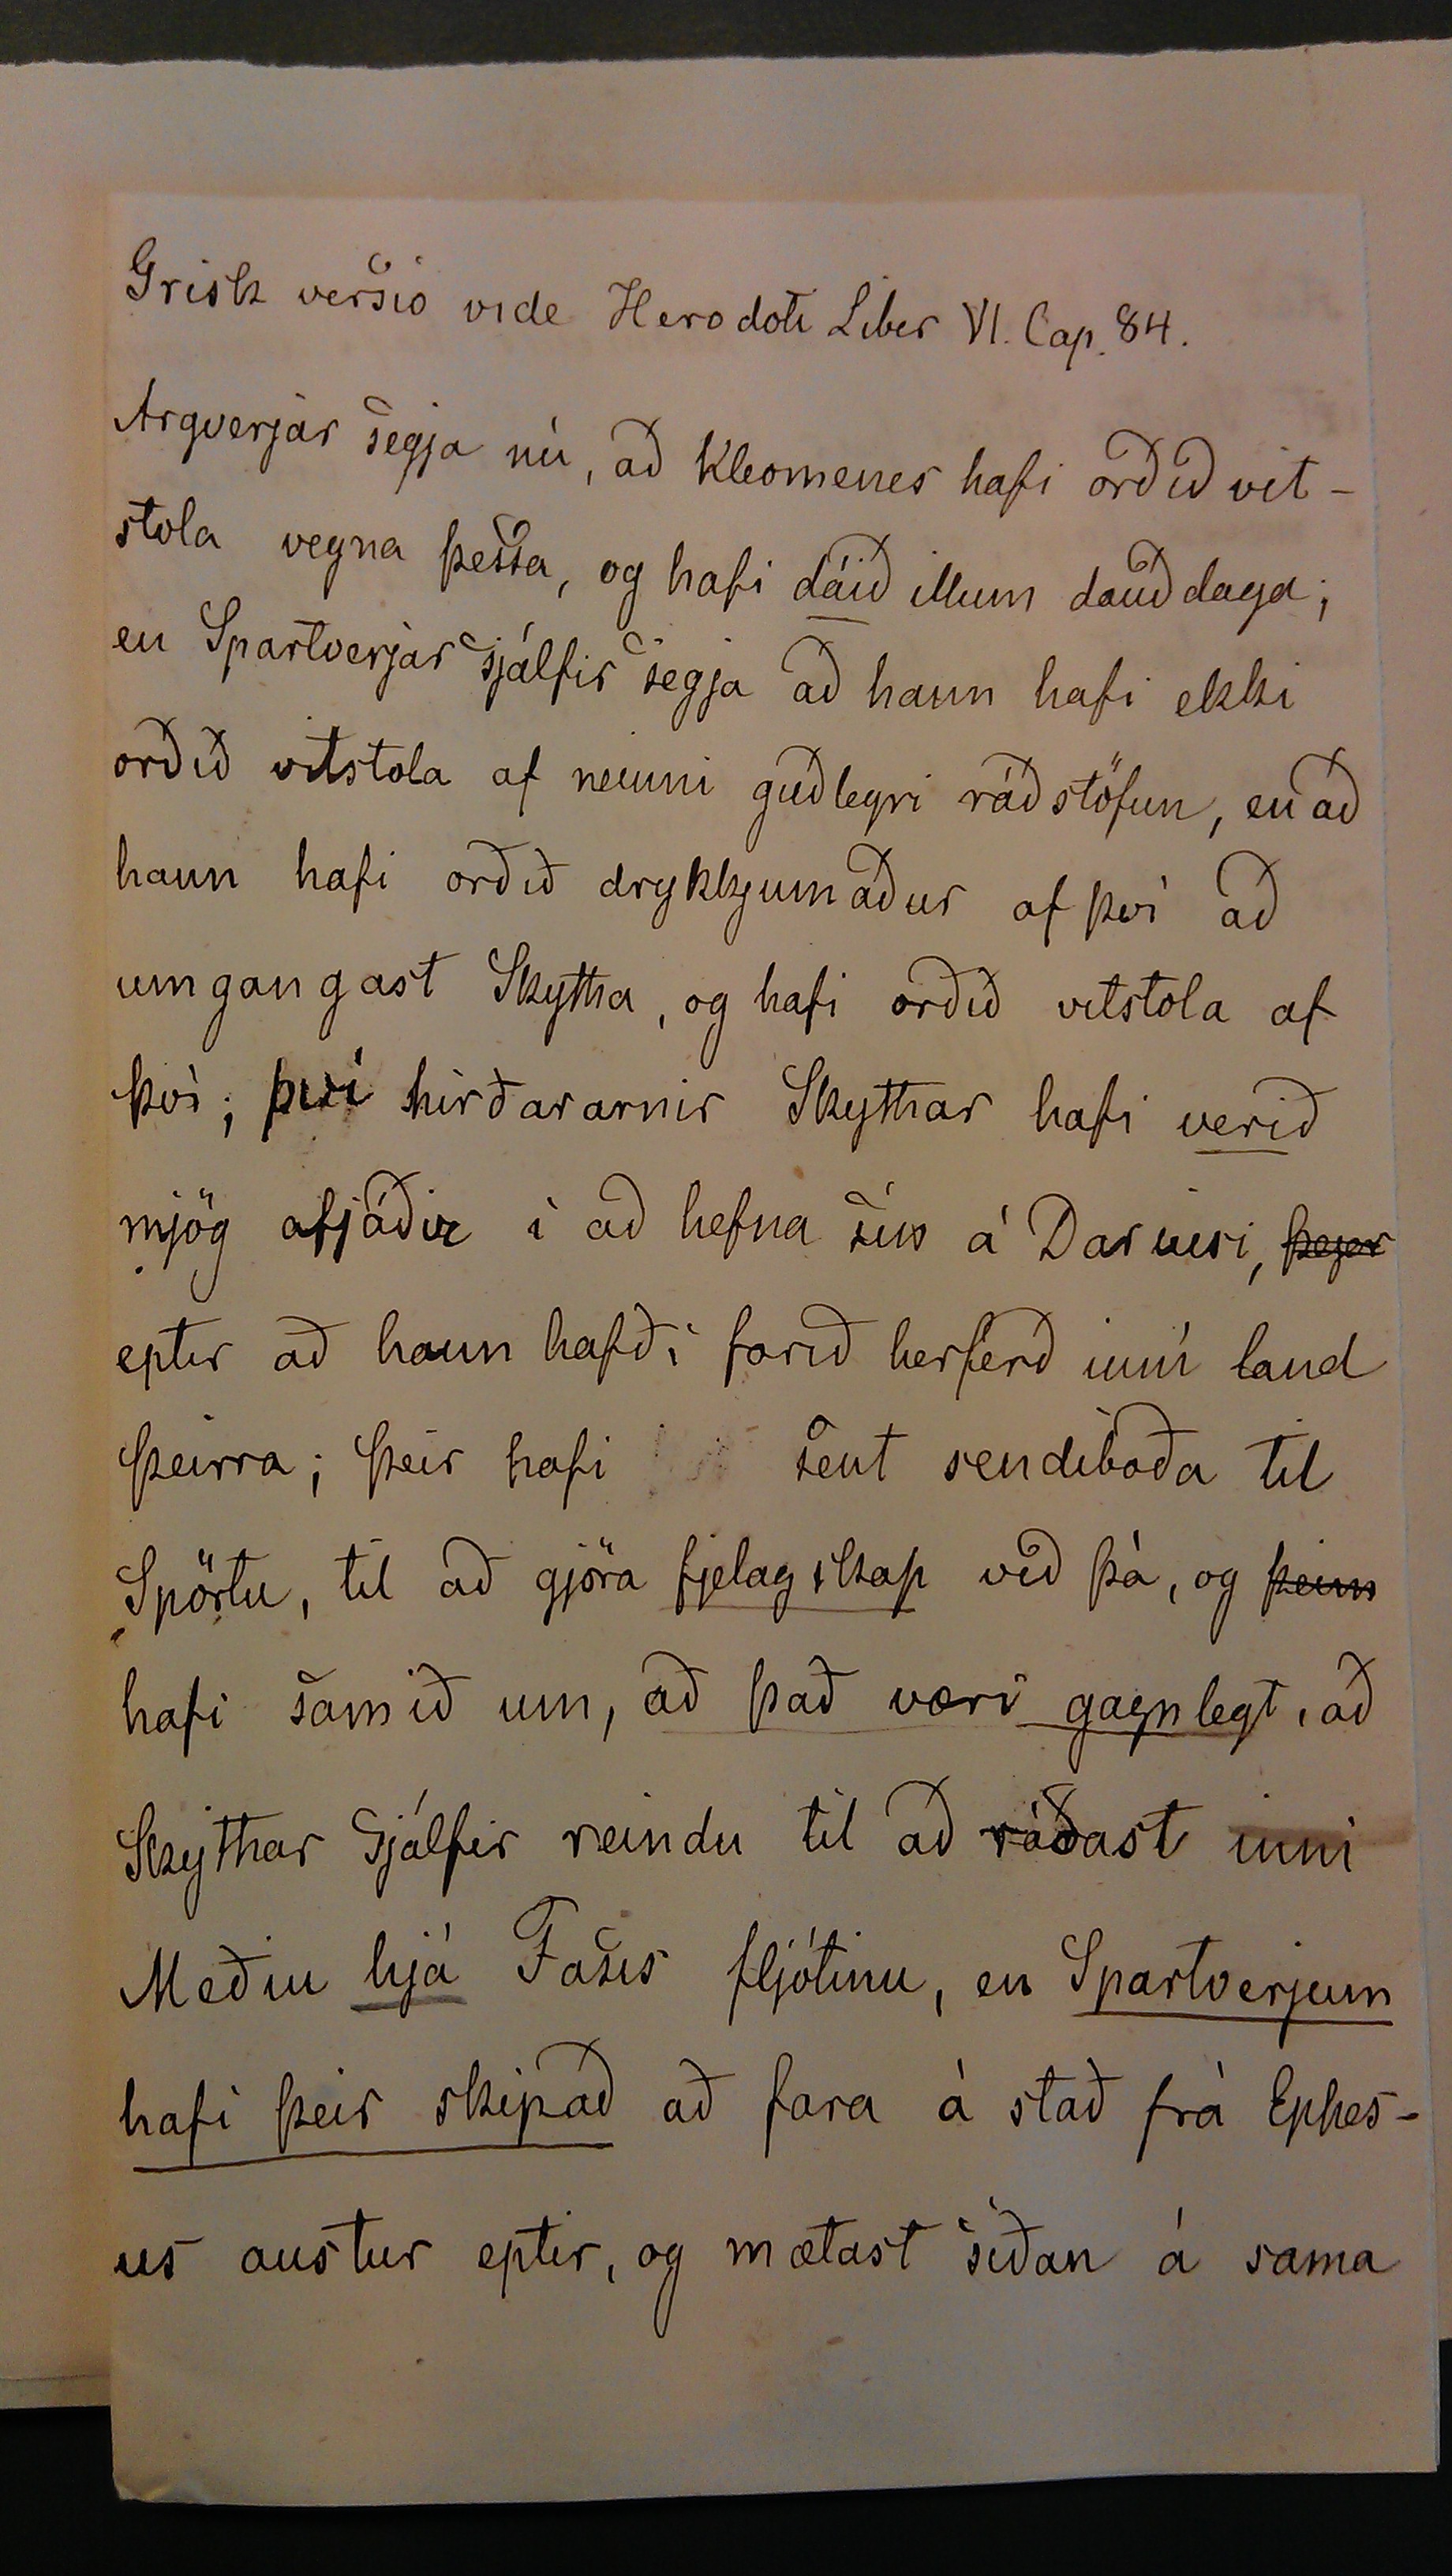 Grisk versio vide Herodoti Liber VI. Cap. 84.
Argverjar segja nú, að Kleomenes hafi orðið vit-
stola vegna þessa, og hafi dáið illum dauðdaga;
en Spartverjar sjálfir segja að hann hafi ekki
orðið vitstola af neinni guðlegri ráðstöfun, en að
hann hafi orðið drykkjumaður af því að
umgangast Skytha, og hafi orðið vitstola af
því; því hirðararnir Skythar hafi verið
mjög afjáðir í að hefna sín á Dariusi, þegar
eptir að hann hafði farið herferð inní land
þeirra; þeir hafi sent sendiboða til
Spörtu, til að gjöra fjelagskap við þá, og þeim
hafi samið um, að það væri gagnlegt, að
Skythar sjálfir reindu til að ráðast inni
Mediu hjá Fasis fljótinu, en Spartverjum
hafi þeir skipað að fara á stað frá Ephes-
us austur eptir, og mætast síðan á sama